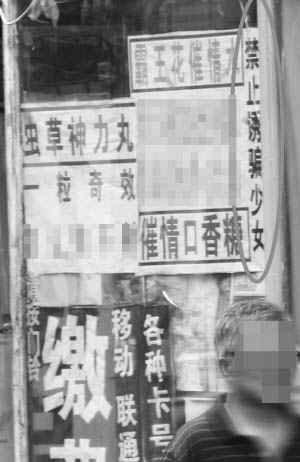 霸王花催情
禁止诱骗少女
虫草神力丸
一粒奇效
催情口香糖
按门铃
缴费
移动联通
各种卡号